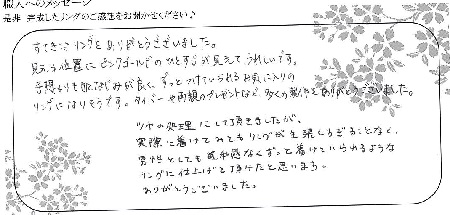 職人へのメッセージ
是非、完成したリングのご感想をお聞かせください♪
すてきなリングをありがとうございました。
見える位置にピンクゴールドのひとすじが見えてうれしいです。
予想よりも肌なじみが良く、ずっとつけていられるお気に入りの
リングになりそうです。 や両親のプレゼントなど、多くの製作をありがとうございました。
ツヤの処理にして頂きましたが、
実際に着けてみてもリングが主張しすぎることなく、
男性としても違和感なくずっと着けていられるような
リングに仕上げて頂けたと思います。
ありがとうございました。